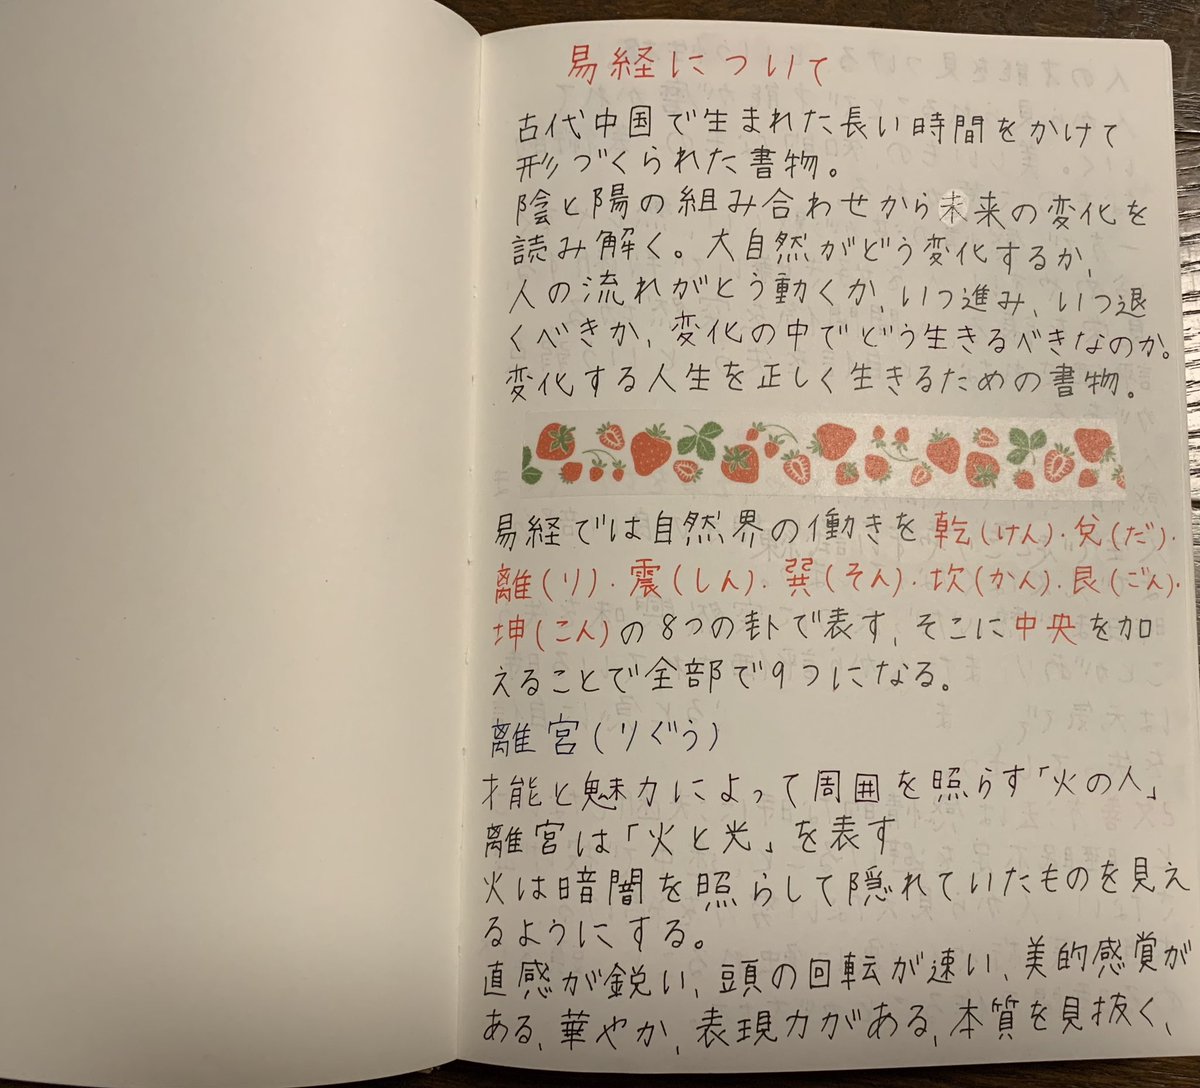 易経について
古代中国で生まれた長い時間をかけて
形づくられた書物。
陰と陽の組み合わせから未来の変化を
読み解く。大自然がどう変化するか、
人の流れがどう動くか、いつ進み、いつ退
くべきか、変化の中でどう生きるべきなのか。
変化する人生を正しく生きるための書物。
易経では自然界の働きを乾(けん)・兌(だ)・
離(り)・震(しん)・巽(そん)・坎(かん)・艮(ごん)・
坤(こん)の8つの卦で表す、そこに中央を加
えることで全部で9つになる。
離宮(りぐう)
才能と魅力によって周囲を照らす「火の人」
離宮は「火と光」を表す
火は暗闇を照らして隠れていたものを見え
るようにする。
直感が鋭い、頭の回転が速い、美的感覚が
ある、華やか、表現力がある、本質を見抜く、